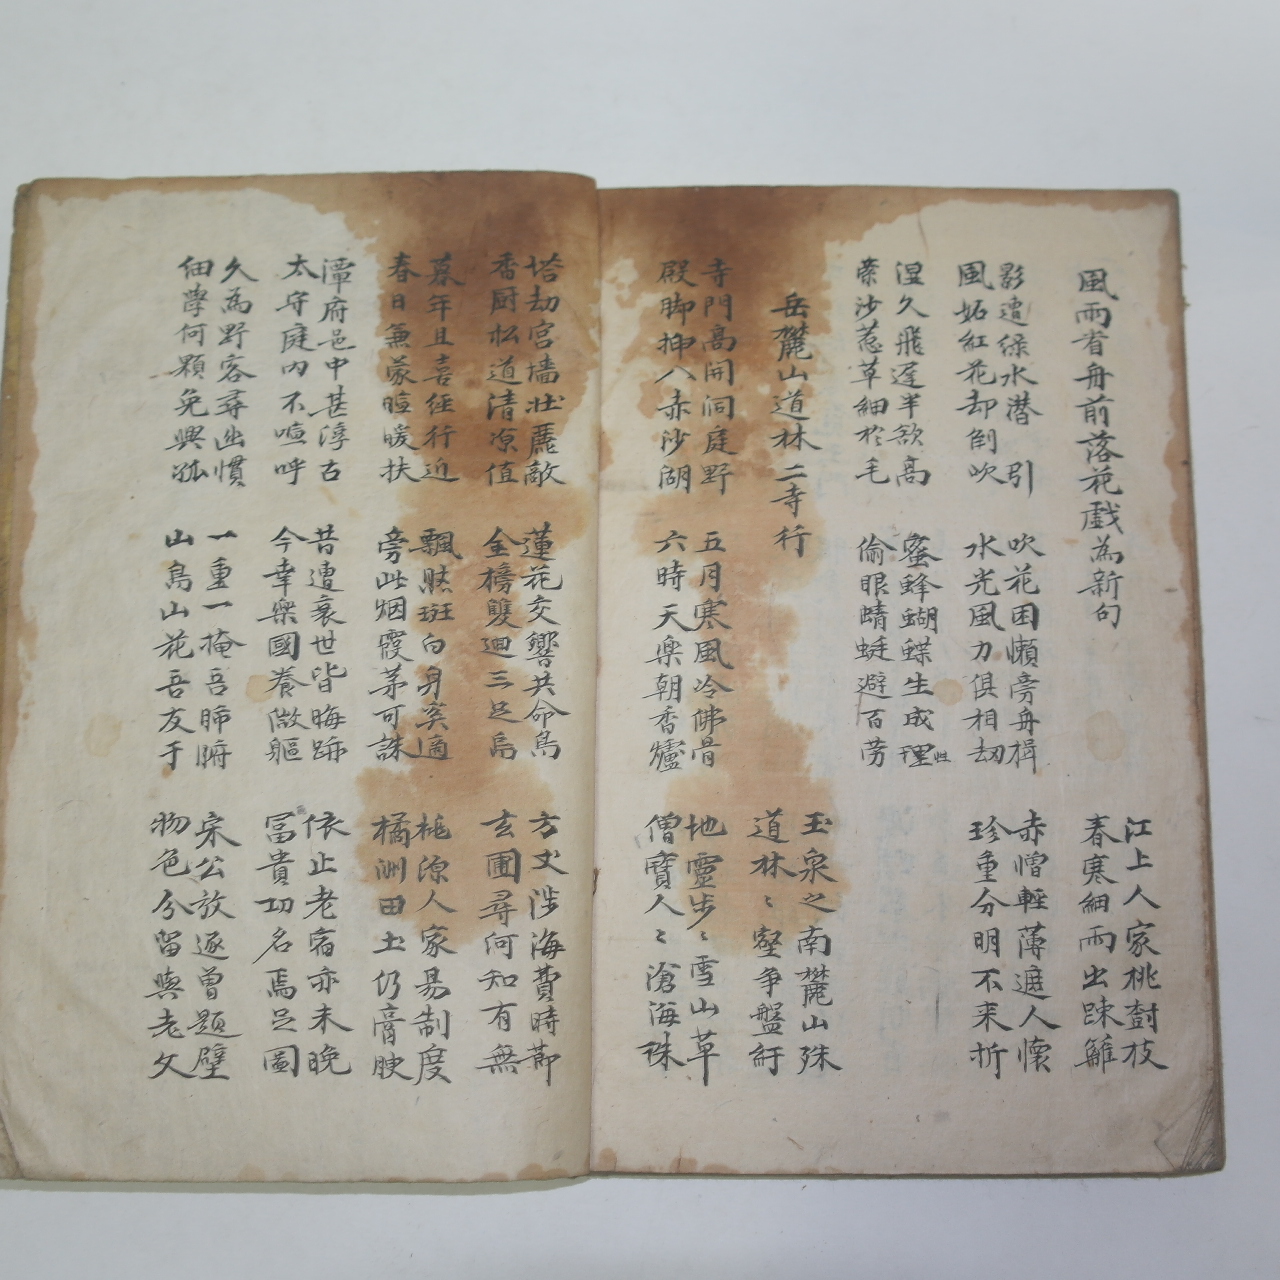 風雨看舟前落花戲為新句
江上人家桃樹枝
春寒細雨出踈籬
影遭綠水潜引
風妬紅花却倒吹
吹花困懶旁舟楫
水光風力俱相刼
赤憎輕薄遮人懷
珍重分明不来折
湿久飛遲半欲高
縈沙惹草細於毛
蜜蜂蝴蝶生成理性
偷眼蜻蜓避百劳
岳麓山道林二寺行
玉泉之南麓山殊
道林〻壑争盤紆
寺門高開洞庭野
殿脚挿入赤沙湖
五月寒風冷佛骨
六時天樂朝香爐
地靈步〻雪山草
僧寶人〻滄海珠
塔劫宮墻壮麗敵
香厨松道清凉值
蓮花交響共命鳥
金榜雙迴三足烏
方丈涉海費時節
玄圃尋何知有無
暮年且喜經行近
春日兼蒙暄暖扶
飄然斑白身奚適
旁此烟霞茅可誅
桃源人家易制度
橘洲田土仍膏腴
潭府邑中甚淳古
太守庭内不喧呼
昔遭衰世皆晦跡
今幸樂國養微軀
依止老宿亦未晚
冨貴功名焉足圖
久為野客尋幽慣
細學何顒免興孤
一重一掩吾肺腑
山鳥山花吾友于
宋公放逐曾題壁
物色分留與老夫